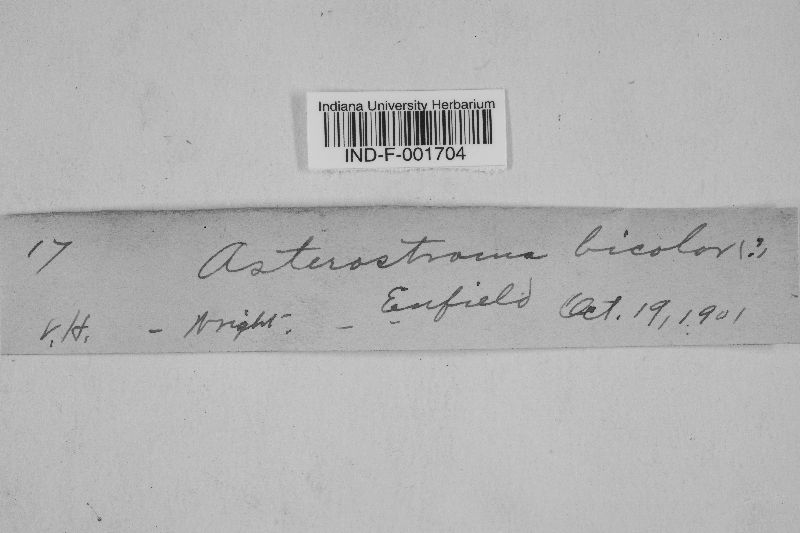 Indiana University Herbarium
IND-F-001704
17 Asterostroma bicolor (?)
V.H. - Wright. - Enfield Oct. 19, 1901